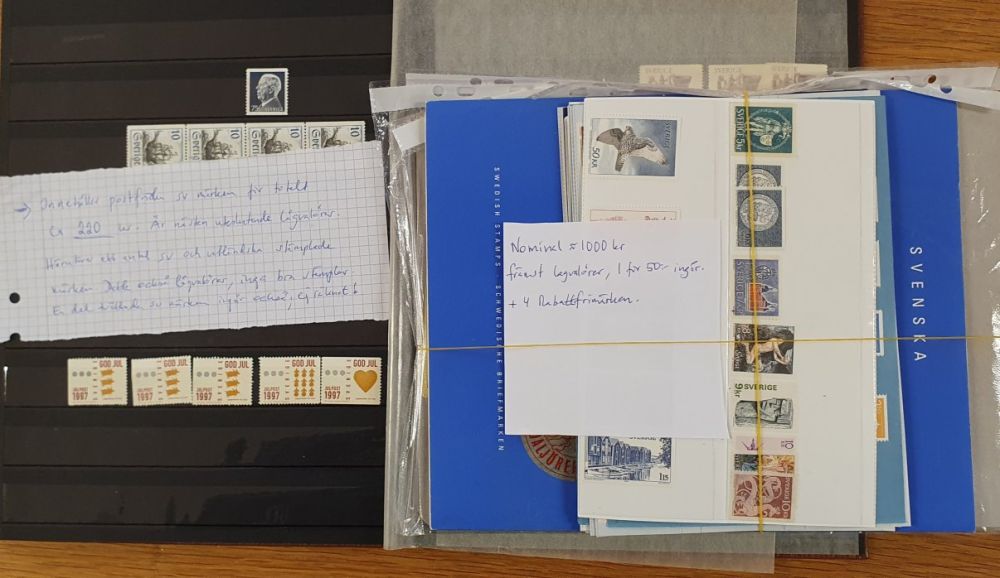 SVERIGE SVERIGE
10 10 10 10
→ Innehåller postfriska sv märken för totalt
Ca 220 kr. Är nästan uteslutande lågvalörer.
Härutöver ett antal sv och utländska stämplade
märken. Dock också lågvalörer, inga bra stämplar.
En del tråkade sv märken ingår också, ej räknat!
GOD JUL GOD JUL GOD JUL GOD JUL GOD JUL
JULPOST JULPOST JULPOST JULPOST JULPOST
1997 1997 1997 1997 1997
SWEDISH STAMPS - SCHWEDISCHE BRIEFMARKEN
50 KR SVERIGE
SVERIGE 5 KR
Nominal ≈ 1000 kr
främst lågvalörer, 1 för 50:- ingår.
+ 4 Rabattfrimärken.
SVERIGE
9 kr SVERIGE
SVERIGE
1.15
10
SVERIGE 10 KR
SVENSKA